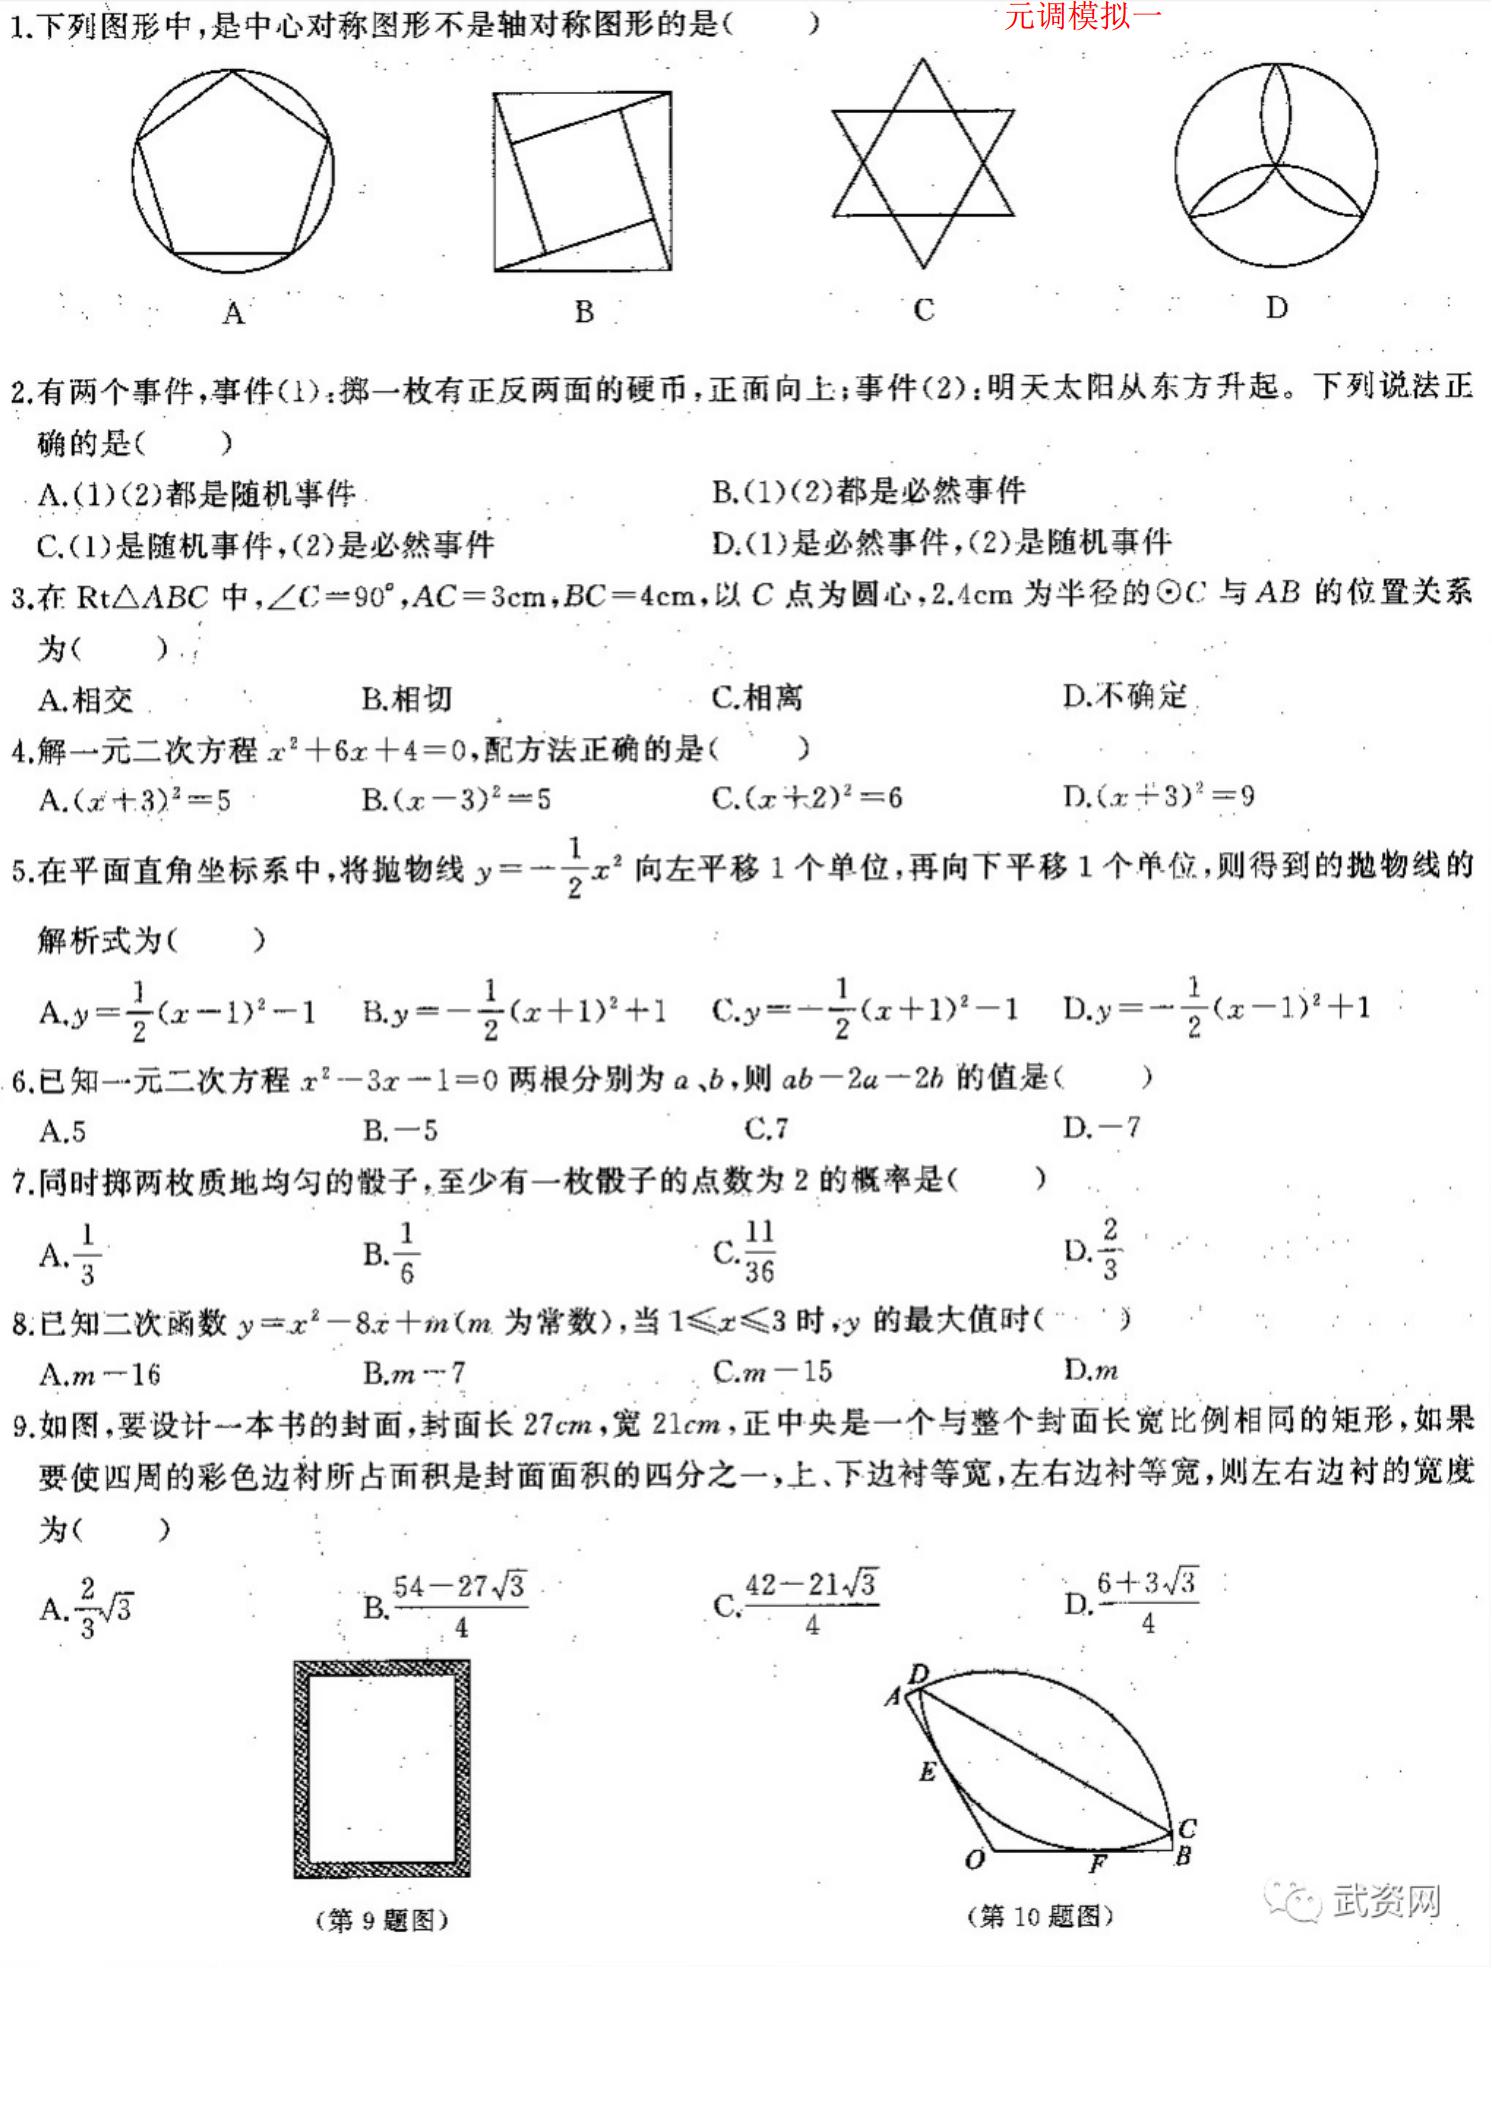 元调模拟一
1.下列图形中,是中心对称图形不是轴对称图形的是(  )
A B C D
2.有两个事件,事件(1):掷一枚有正反两面的硬币,正面向上;事件(2):明天太阳从东方升起。下列说法正
确的是(  )
A.(1)(2)都是随机事件 B.(1)(2)都是必然事件
C.(1)是随机事件,(2)是必然事件 D.(1)是必然事件,(2)是随机事件
3.在 Rt△ABC 中,∠C=90°,AC=3cm,BC=4cm,以 C 点为圆心,2.4cm 为半径的⊙C 与 AB 的位置关系
为(  )
A.相交 B.相切 C.相离 D.不确定
4.解一元二次方程 x²+6x+4=0,配方法正确的是(  )
A.(x+3)²=5 B.(x-3)²=5 C.(x+2)²=6 D.(x+3)²=9
5.在平面直角坐标系中,将抛物线 y=-1/2x² 向左平移 1 个单位,再向下平移 1 个单位,则得到的抛物线的
解析式为(  )
A.y=1/2(x-1)²-1 B.y=-1/2(x+1)²+1 C.y=-1/2(x+1)²-1 D.y=-1/2(x-1)²+1
6.已知一元二次方程 x²-3x-1=0 两根分别为 a、b,则 ab-2a-2b 的值是(  )
A.5 B.-5 C.7 D.-7
7.同时掷两枚质地均匀的骰子,至少有一枚骰子的点数为 2 的概率是(  )
A.1/3 B.1/6 C.11/36 D.2/3
8.已知二次函数 y=x²-8x+m(m 为常数),当 1≤x≤3 时,y 的最大值时(  )
A.m-16 B.m-7 C.m-15 D.m
9.如图,要设计一本书的封面,封面长 27cm,宽 21cm,正中央是一个与整个封面长宽比例相同的矩形,如果
要使四周的彩色边衬所占面积是封面面积的四分之一,上、下边衬等宽,左右边衬等宽,则左右边衬的宽度
为(  )
A.2/3√3 B.(54-27√3)/4 C.(42-21√3)/4 D.(6+3√3)/4
A D
E
O F C B
(第 9 题图) (第 10 题图)
武资网